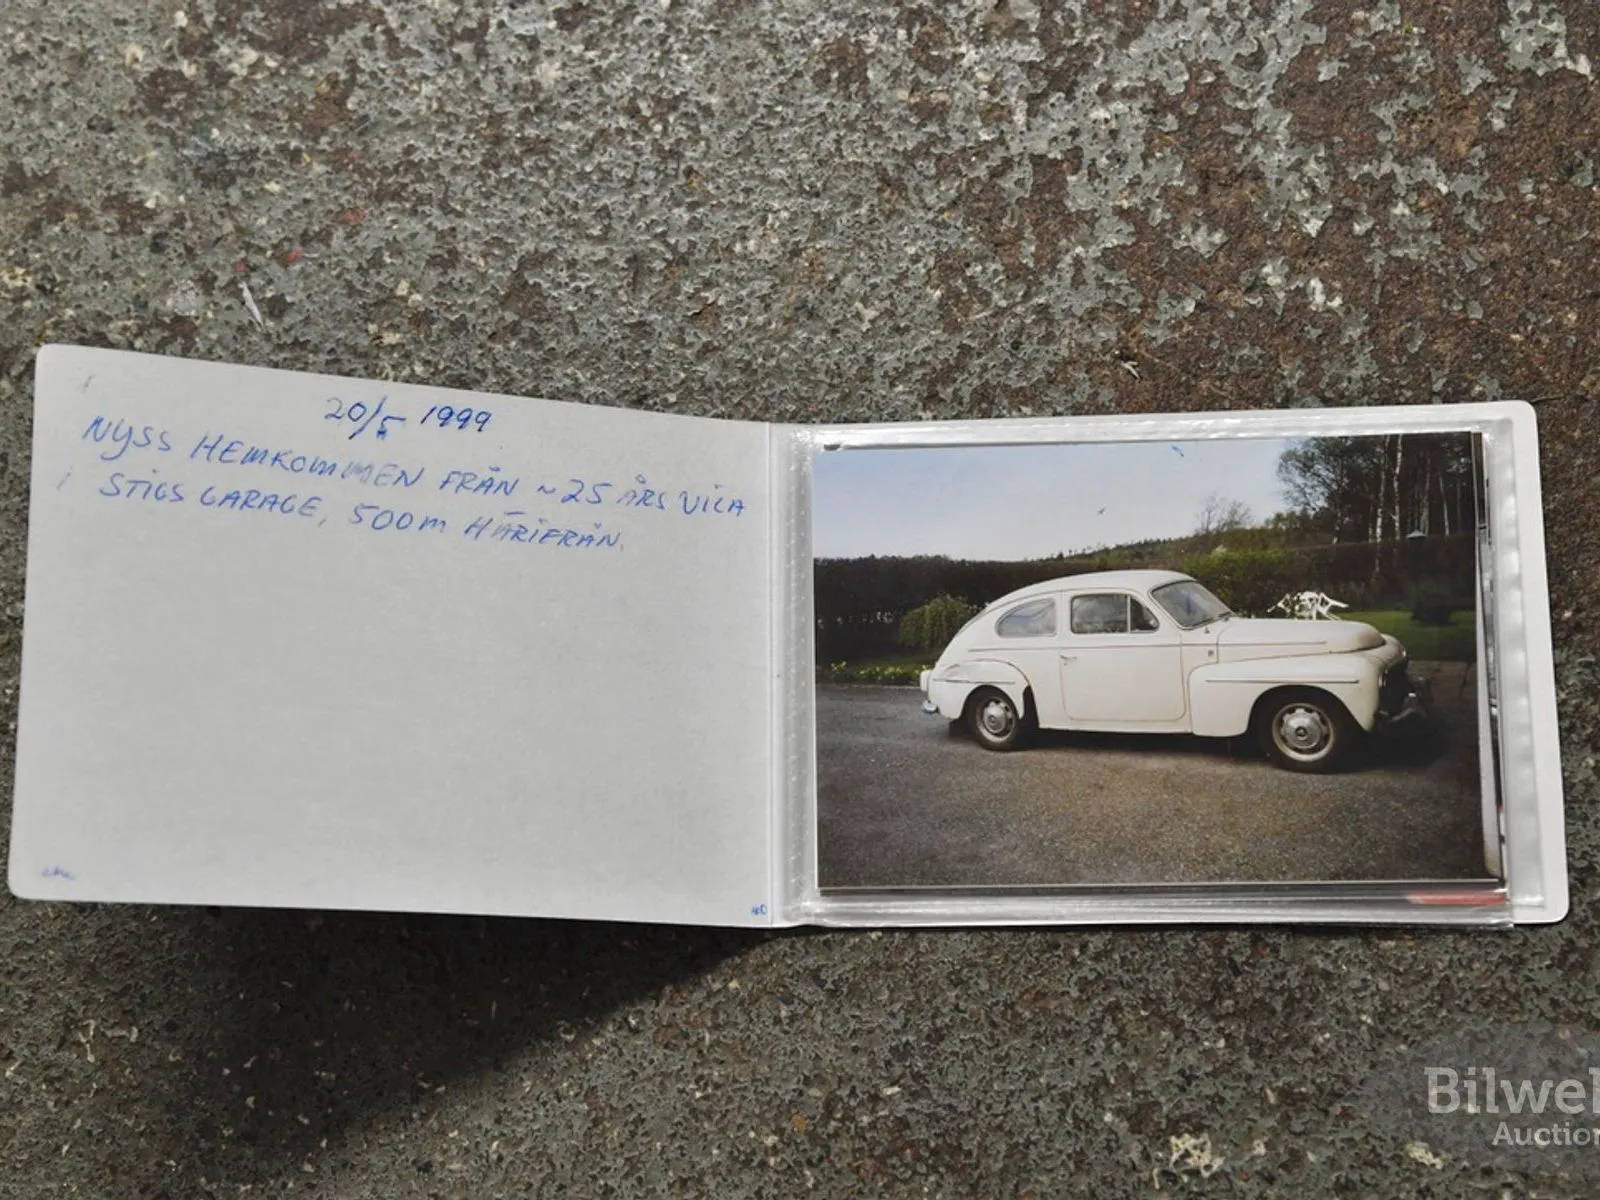 20/5 1999
NYSS HEMKOMMEN FRÅN ~25 ÅRS VILA
I STIGS GARAGE, 500m HÄRIFRÅN.
Bilwe
Auction